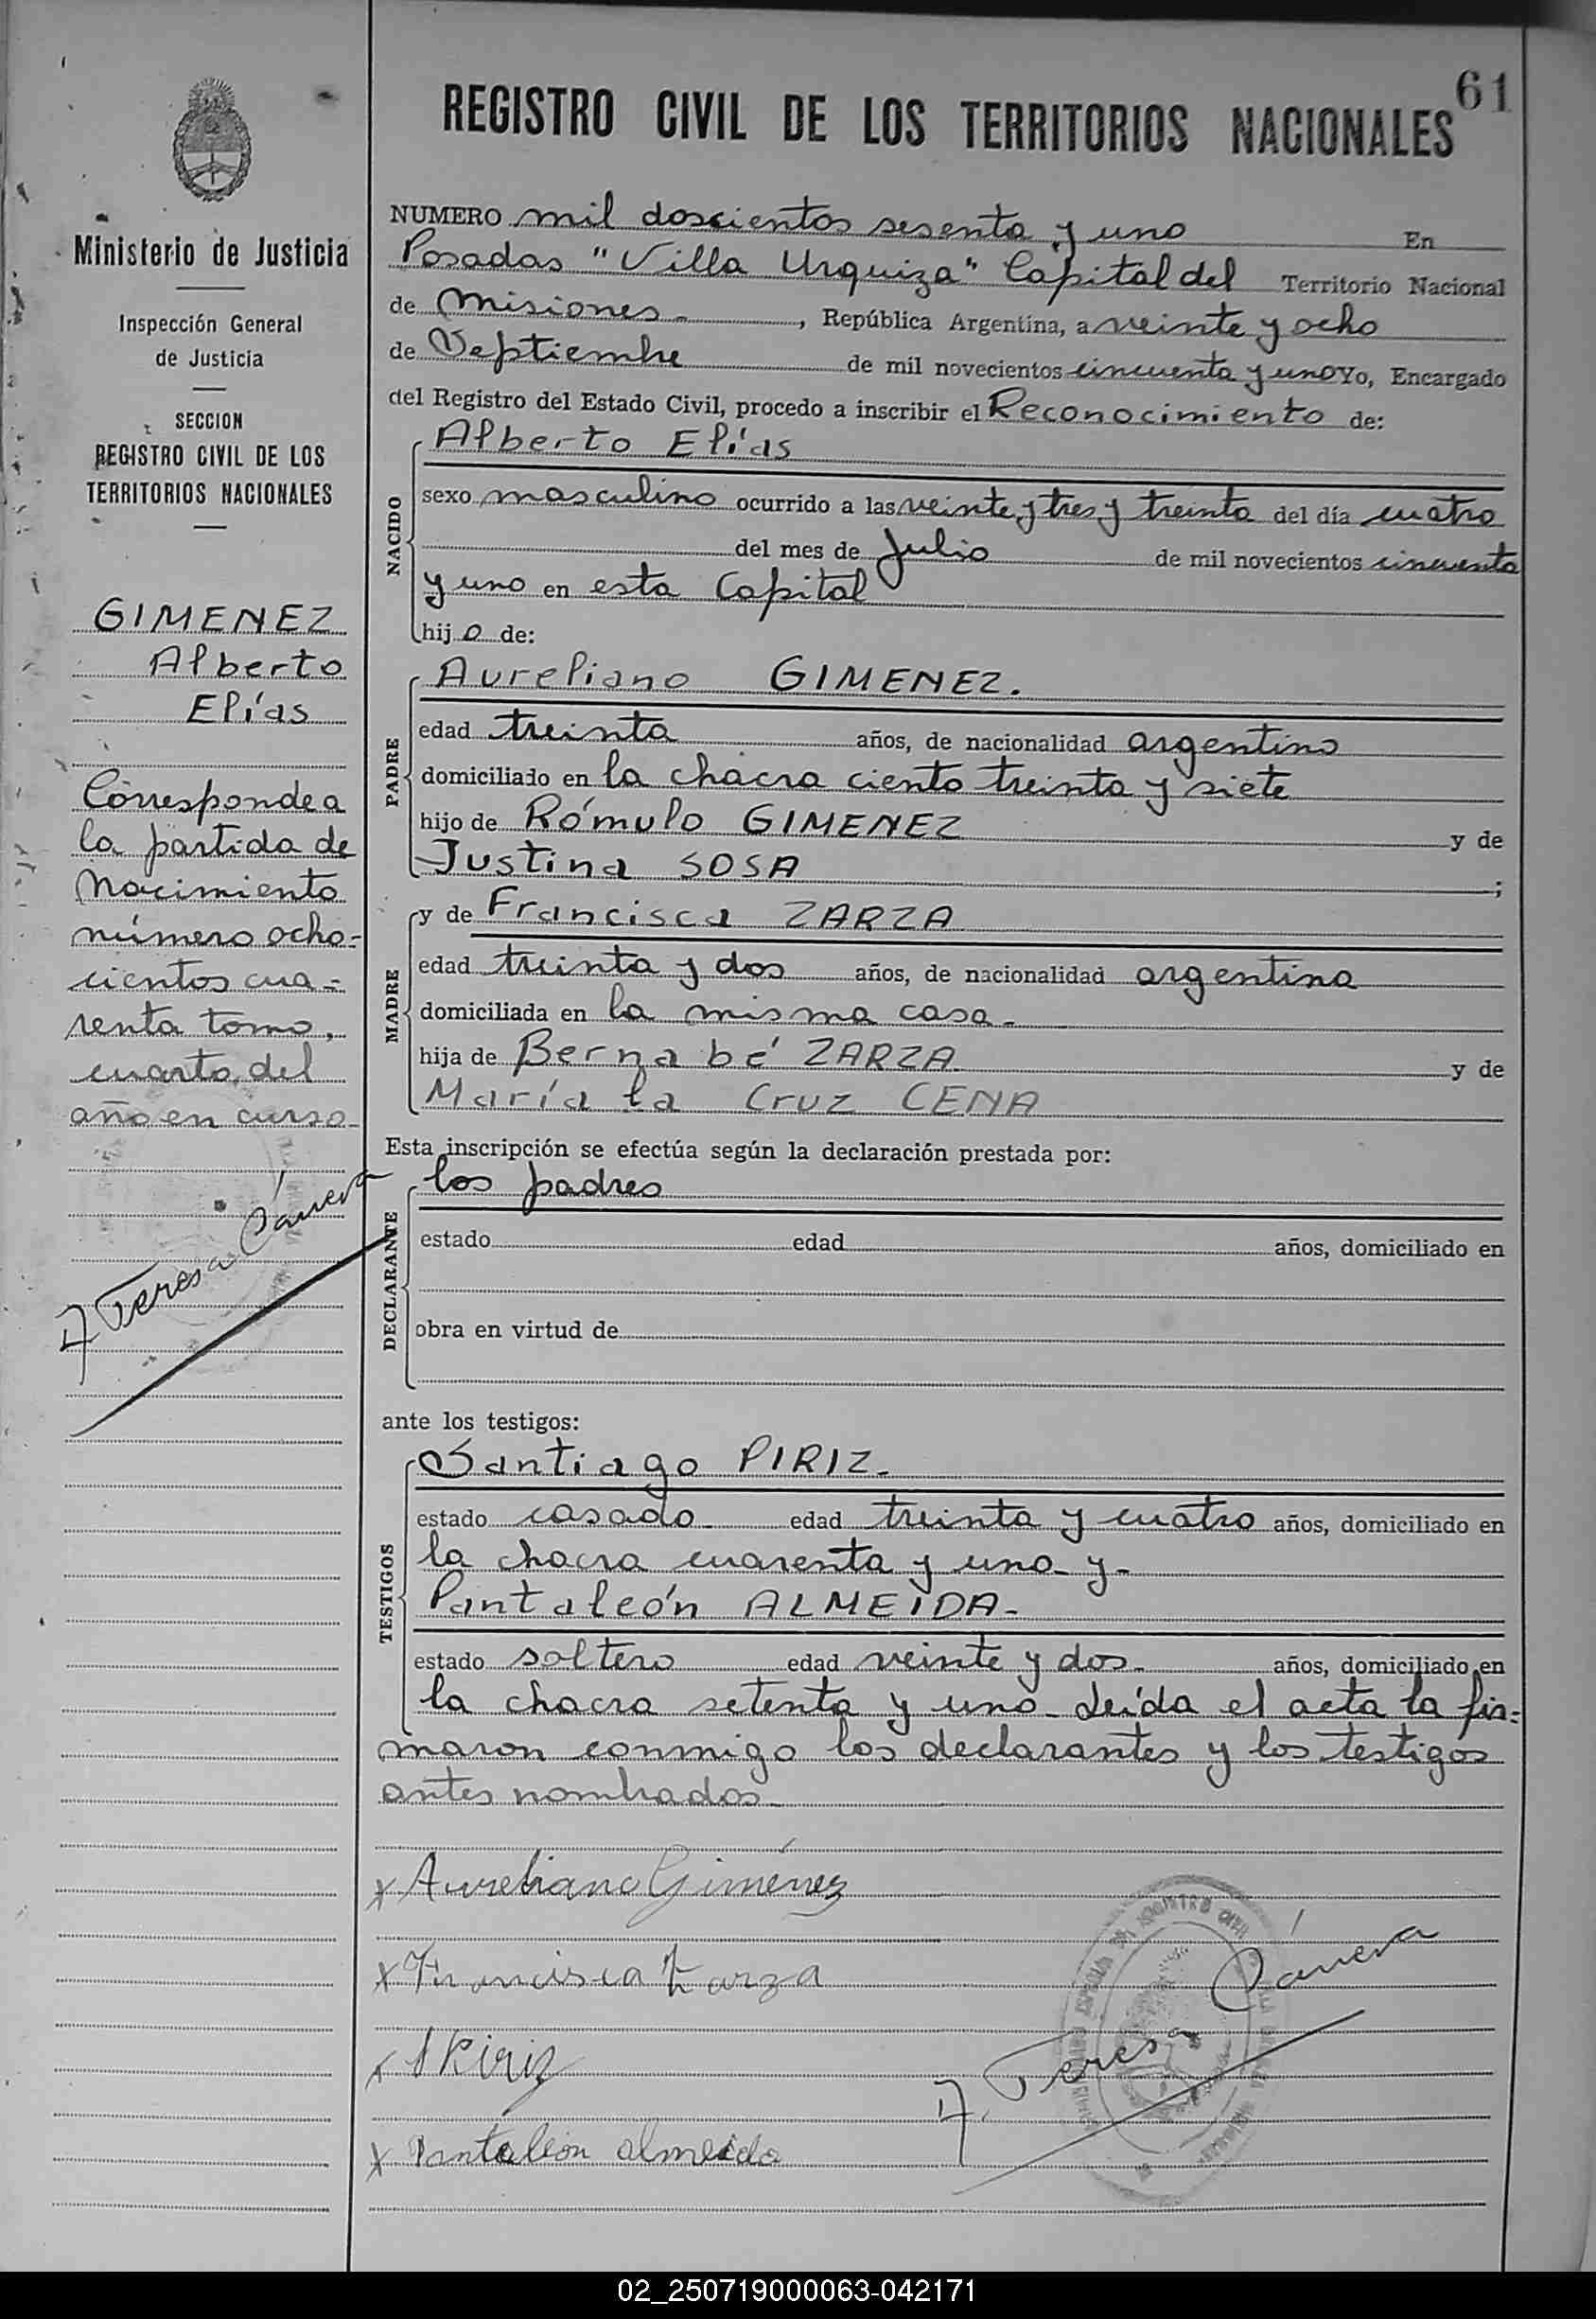 61
REGISTRO CIVIL DE LOS TERRITORIOS NACIONALES
Ministerio de Justicia
Inspección General
de Justicia
SECCION
REGISTRO CIVIL DE LOS
TERRITORIOS NACIONALES
GIMENEZ
Alberto
Elías
Corresponde a
la partida de
Nacimiento
número ocho-
cientos cua-
renta tomo,
cuarto, del
año en curso-
A Teresa Cánera
NUMERO mil doscientos sesenta y uno En
Posadas "Villa Urquiza" Capital del Territorio Nacional
de Misiones-, República Argentina, a veinte y ocho
de Septiembre de mil novecientos cincuenta y uno Yo, Encargado
del Registro del Estado Civil, procedo a inscribir el Reconocimiento de:
NACIDO
Alberto Elías
sexo masculino ocurrido a las veinte y tres y treinta del día cuatro
del mes de Julio de mil novecientos cincuenta
y uno en esta Capital
hijo de:
PADRE
Aureliano GIMENEZ.
edad treinta años, de nacionalidad argentino
domiciliado en la chacra ciento treinta y siete
hijo de Rómulo GIMENEZ y de
Justina SOSA ;
MADRE
y de Francisca ZARZA
edad treinta y dos años, de nacionalidad argentina
domiciliada en la misma casa-
hija de Bernabé ZARZA y de
María la Cruz CENA
Esta inscripción se efectúa según la declaración prestada por:
DECLARANTE
los padres
estado edad años, domiciliado en
obra en virtud de
ante los testigos:
TESTIGOS
Santiago PIRIZ-
estado casado edad treinta y cuatro años, domiciliado en
la chacra cuarenta y uno- y-
Pantaleón ALMEIDA-
estado soltero edad veinte y dos- años, domiciliado en
la chacra setenta y uno- Leída el acta la fir-
maron conmigo los declarantes y los testigos
antes nombrados-
x Aureliano Giménez
x Francisca Zarza
x S Piriz
x Pantaleon almeida
A. Teresa Cánera
02_250719000063-042171